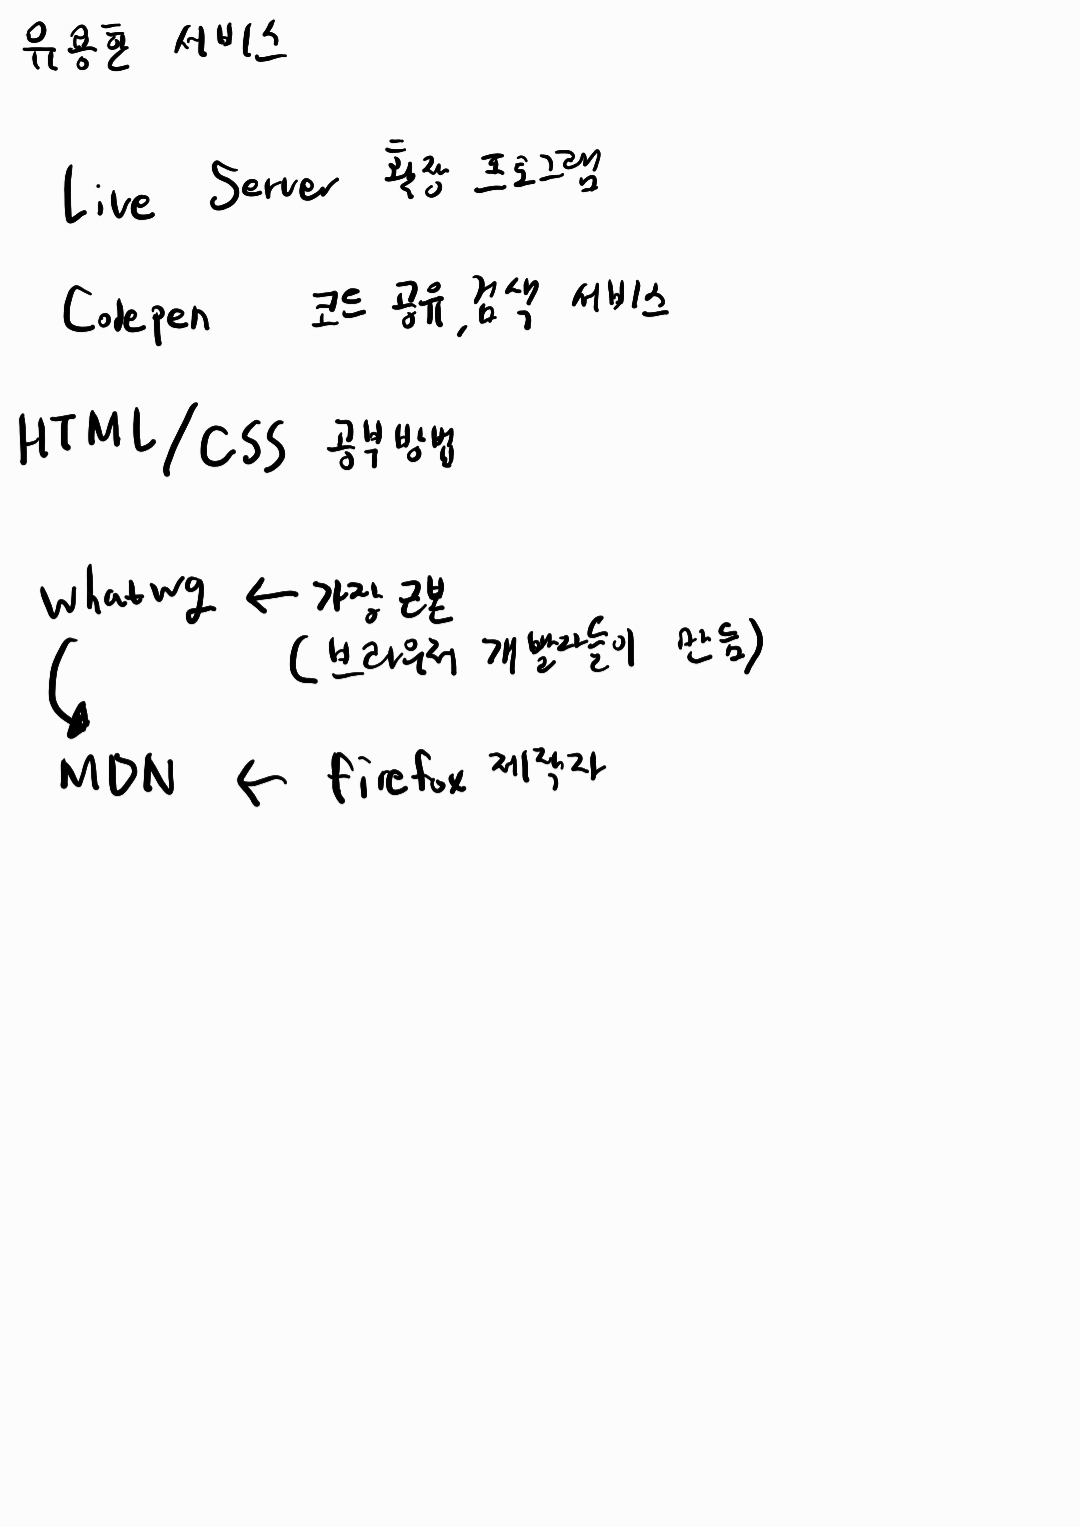 유용한 서비스
Live Server 확장 프로그램
Codepen 코드 공유, 검색 서비스
HTML/CSS 공부방법
whatwg ← 가장 근본
(브라우저 개발자들이 만듦)
MDN ← firefox 제작자